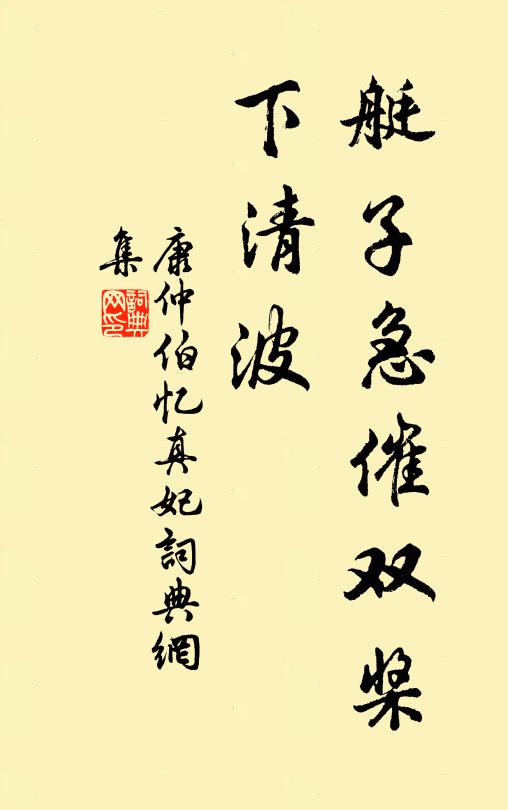 艇子急催双桨
下清波
康仲伯忆真妃詞典網
集
詞典
网印